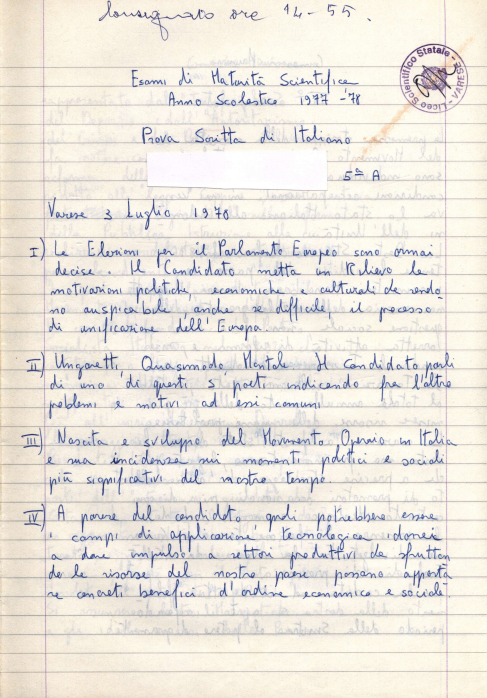 Consegnato ore 14-55.
Esami di Maturità Scientifica
Anno Scolastico 1977-'78
Liceo Scientifico Statale - VARESE
Prova Scritta di Italiano
5ª A
Varese 3 Luglio 1978
I) Le Elezioni per il Parlamento Europeo sono ormai
decise. Il Candidato metta in Rilievo le
motivazioni politiche, economiche e culturali che rendo
no auspicabile, anche se difficile, il processo
di unificazione dell'Europa.
II) Ungaretti, Quasimodo Montale Il Candidato parli
di uno di questi 3 poeti indicando fra l'altro
problemi e motivi ad essi comuni
III) Nascita e sviluppo del Movimento Operaio in Italia
e sua incidenza sui momenti politici e sociali
più significativi del nostro tempo.
IV) A parere del candidato quali potrebbero essere
i campi di applicazione tecnologica idonei
a dare impulso a settori produttivi che sfruttan
do le risorse del nostro paese possano apporta
re concreti benefici d'ordine economico e sociale.